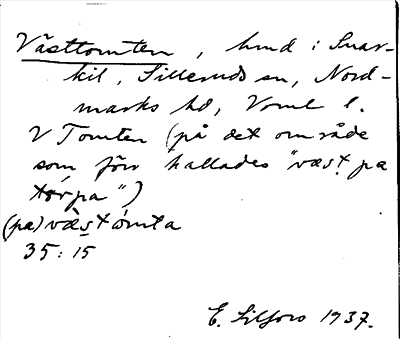 Västtomten, hmd i Snar-
kil, Silleruds sn, Nord-
marks hd, Vrml l.
V Tomten (på det område
som förr kallades "væst pa
torpa")
(pa) væstómta
35:15
E. Lilljors 1937.